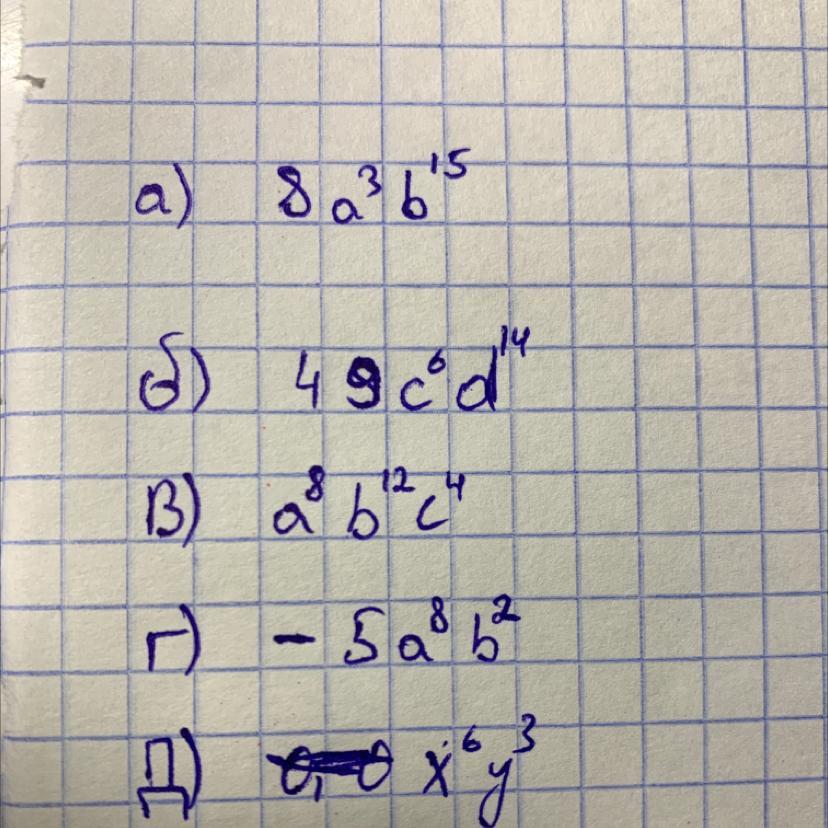 а) 8a³b¹⁵
б) 49c⁶d¹⁴
в) a⁸b¹²c⁴
г) - 5a⁸b²
Д) x⁶y³